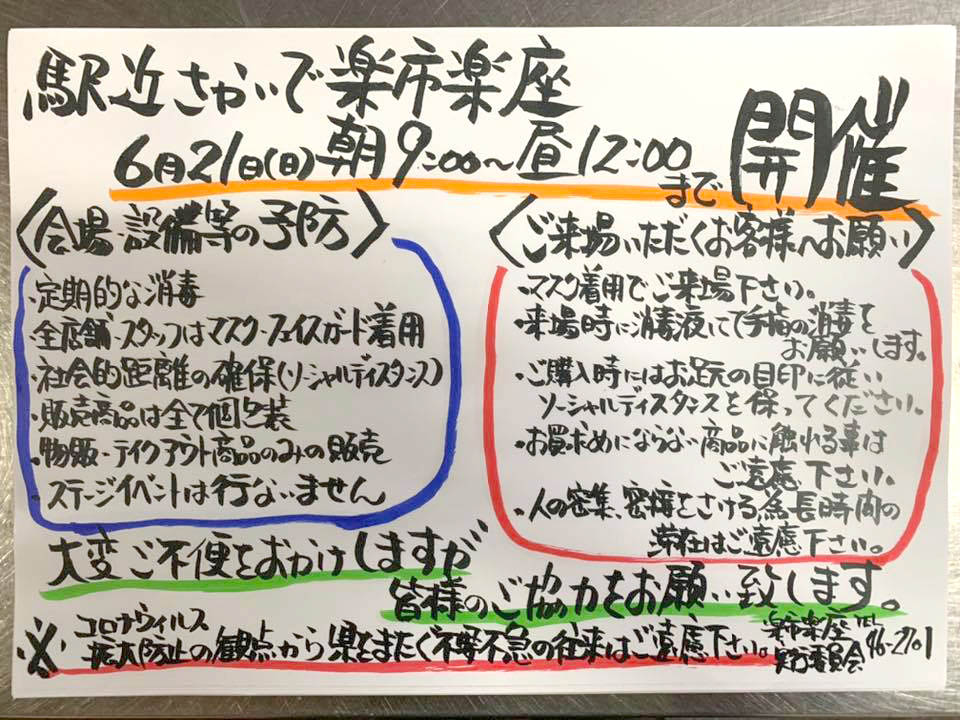 駅近さかいで楽市楽座
6月21日(日)朝9:00〜昼12:00まで
開催
〈会場・設備等の予防〉
・定期的な消毒
・全店舗・スタッフはマスク・フェイスガード着用
・社会的距離の確保(ソーシャルディスタンス)
・販売商品は全て個包装
・物販・テイクアウト商品のみの販売
・ステージイベントは行ないません
〈ご来場いただくお客様へお願い〉
・マスク着用でご来場下さい。
・来場時に消毒液にて手指の消毒を
お願いします。
・ご購入時にはお足元の目印に従い
ソーシャルディスタンスを保ってください。
・お買求めにならない商品に触れる事は
ご遠慮下さい。
・人の密集、密接をさける為長時間の
滞在はご遠慮下さい。
大変ご不便をおかけしますが
皆様のご協力をお願い致します。
※コロナウィルス
拡大防止の観点から県をまたぐ不要不急の往来はご遠慮下さい。
楽市楽座
実行委員会
TEL
46-2701